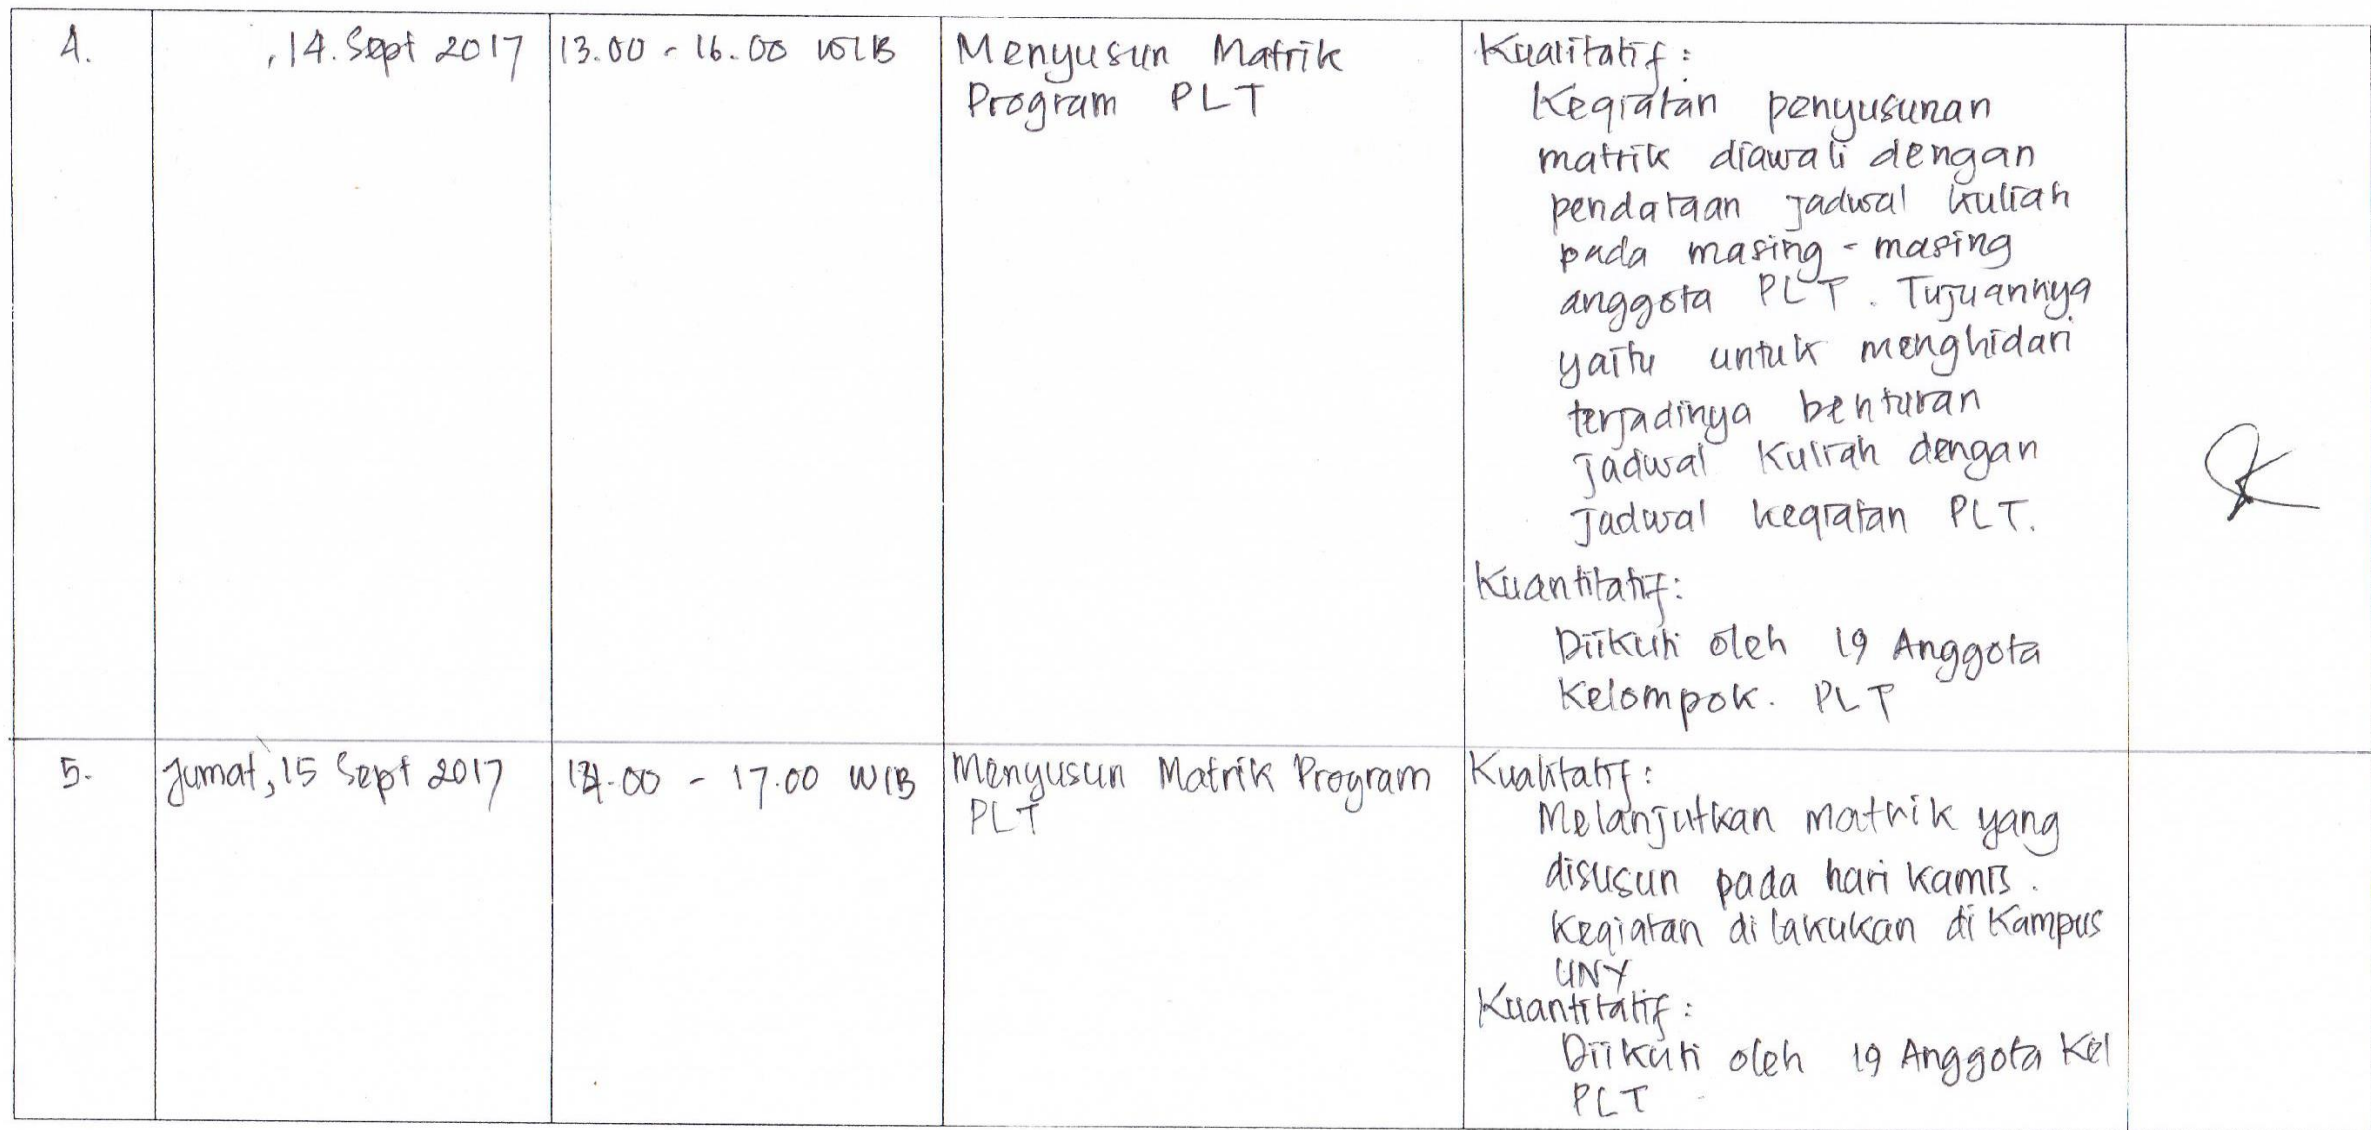 4.
, 14. Sept 2017
13.00 - 16.00 WIB
Menyusun Matrik
Program PLT
Kualitatif :
Kegiatan penyusunan
matrik diawali dengan
pendataan jadwal kuliah
pada masing - masing
anggota PLT. Tujuannya
yaitu untuk menghidari
terjadinya benturan
jadwal kuliah dengan
jadwal kegiatan PLT.
Kuantitatif:
Diikuti oleh 19 Anggota
Kelompok. PLT
5.
Jumat, 15 Sept 2017
- 17.00 WIB
Menyusun Matrik Program
PLT
Kualitatif :
Melanjutkan matrik yang
disusun pada hari kamis.
Kegiatan di lakukan di Kampus
UNY
Kuantitatif :
Diikuti oleh 19 Anggota Kel
PLT